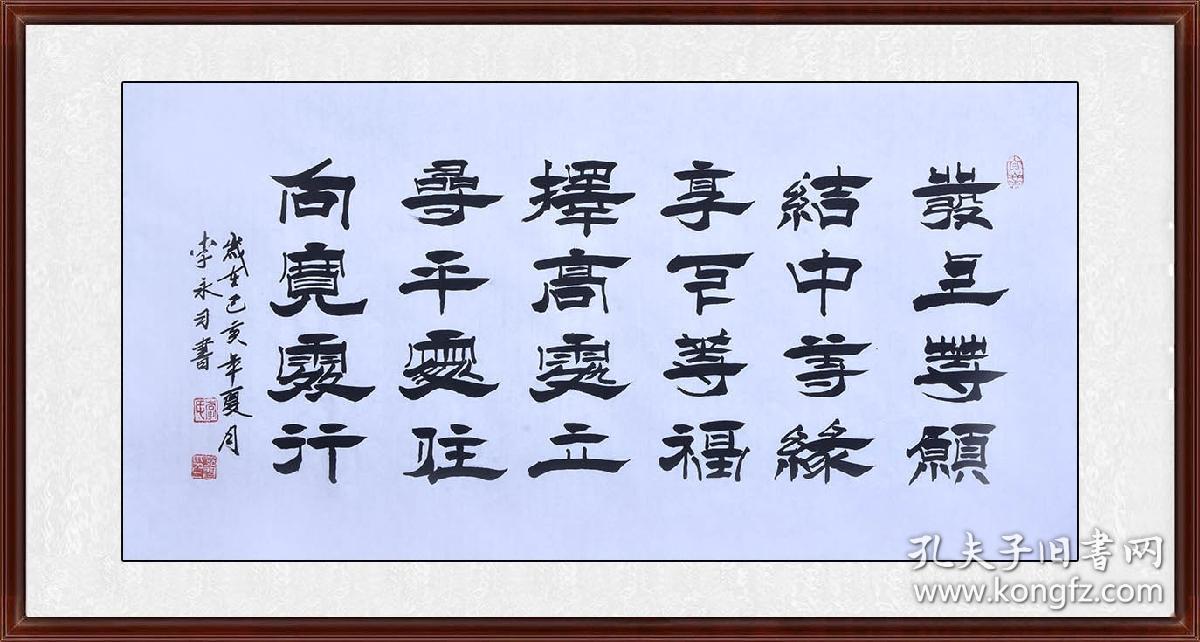 發上等願
結中等緣
享下等福
擇高處立
尋平處住
向寬處行
歲在己亥年夏月
李永司書
孔夫子旧書网
www.kongfz.com